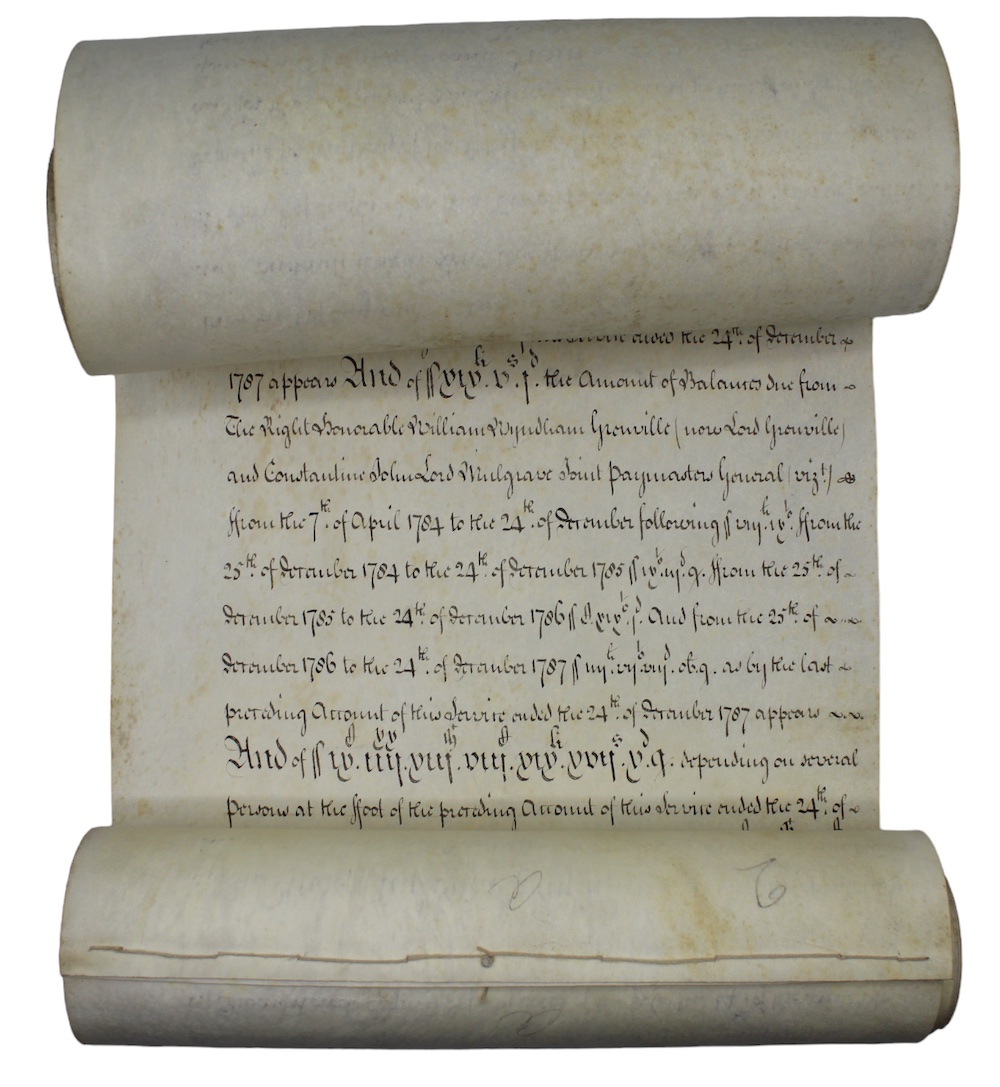 ended the 24th. of December
1787 appears And of ſſ xix.li v.s j.d the Amount of Balances due from
The Right Honorable William Wyndham Grenville (now Lord Grenville)
and Constantine John Lord Mulgrave Joint Paymasters General (vizt.)
ffrom the 7th. of April 1784 to the 24th. of December following ſſ viij.li ix.s ffrom the
25th. of December 1784 to the 24th. of December 1785 ſſ ix.s iij.d q. ffrom the 25th. of
December 1785 to the 24th. of December 1786 And from the 25th. of
December 1786 to the 24th. of December 1787 ob.q. as by the last
preceding Account of this Service ended the 24th. of December 1787 appears
And of depending on several
Persons at the ffoot of the preceding Account of this Service ended the 24th. of
2